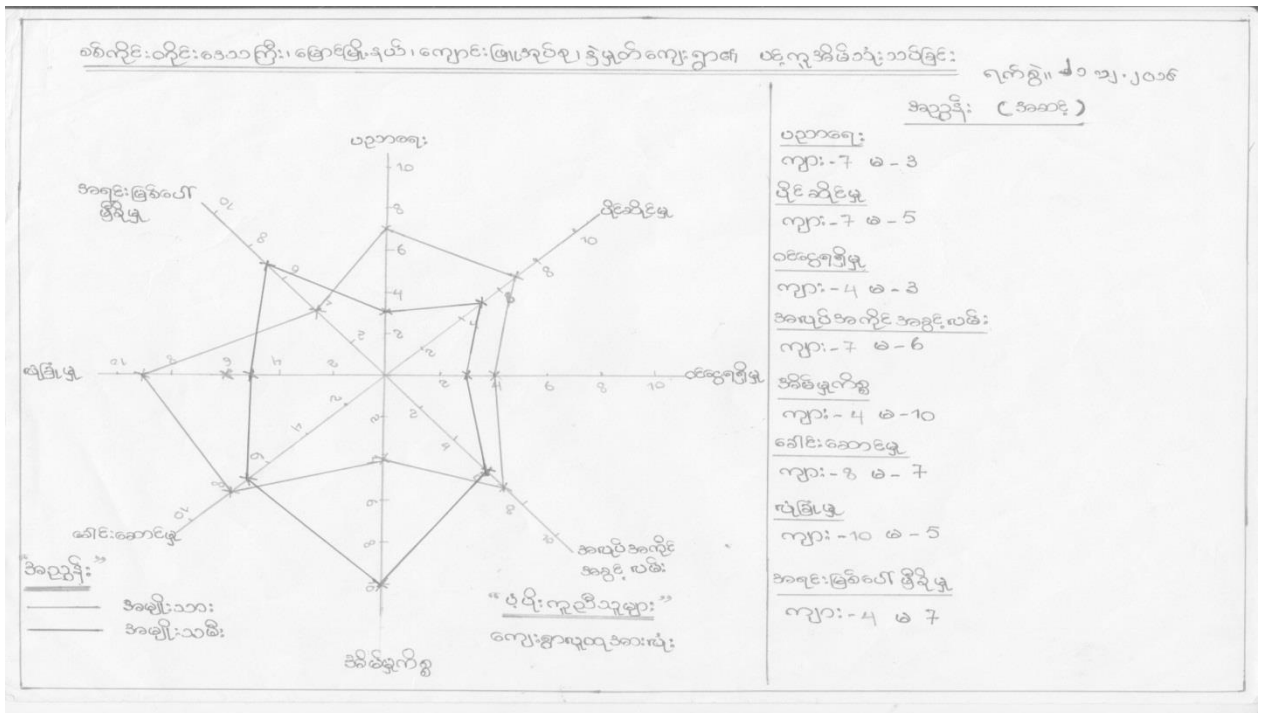 စစ်ကိုင်းတိုင်းဒေသကြီး၊ မြောင်မြို့နယ်၊ ကျောင်းဖြူအုပ်စု၊ ကျေးရွာ၏ ပင့်ကူအိမ်သုံးသပ်ခြင်း
ရက်စွဲ။
အညွှန်း (အဆင့်)
ပညာရေး
ကျား-7 မ-3
ပိုင်ဆိုင်မှု
ကျား-7 မ-5
ဝင်ငွေရရှိမှု
ကျား-4 မ-3
အလုပ်အကိုင်အခွင့်လမ်း
ကျား-7 မ-6
အိမ်မှုကိစ္စ
ကျား-4 မ-10
ခေါင်းဆောင်မှု
ကျား-8 မ-7
လုံခြုံမှု
ကျား-10 မ-5
အရင်းမြစ်ပေါ် မှီခိုမှု
ကျား-4 မ 7
ပညာရေး
10
8
6
4
2
ပိုင်ဆိုင်မှု
10
8
6
4
2
ဝင်ငွေရရှိမှု
2
4
6
8
10
အလုပ်အကိုင်
အခွင့်လမ်း
2
6
8
10
အိမ်မှုကိစ္စ
2
6
8
10
ခေါင်းဆောင်မှု
2
4
6
8
10
လုံခြုံမှု
10
8
6
4
2
အရင်းမြစ်ပေါ်
မှီခိုမှု
10
8
6
2
"အညွှန်း"
အမျိုးသား
အမျိုးသမီး
"ပံ့ပိုးကူညီသူများ"
ကျေးရွာလူထုအားလုံး